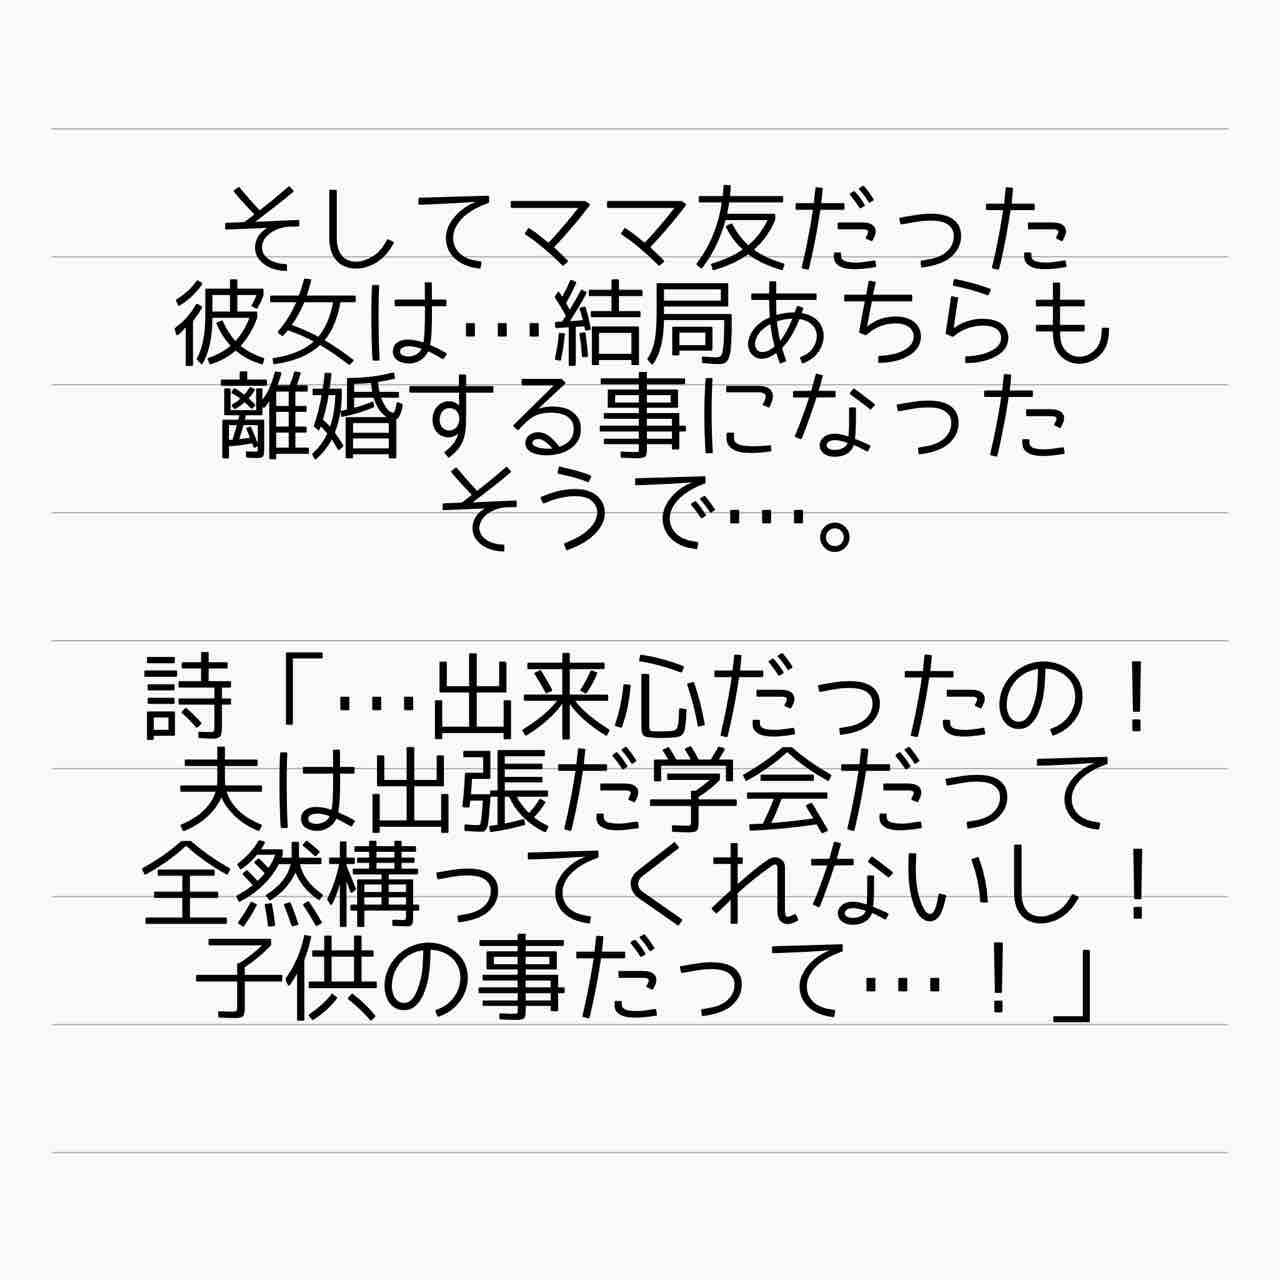 そしてママ友だった
彼女は…結局あちらも
離婚する事になった
そうで…。
詩「…出来心だったの！
夫は出張だ学会だって
全然構ってくれないし！
子供の事だって…！」